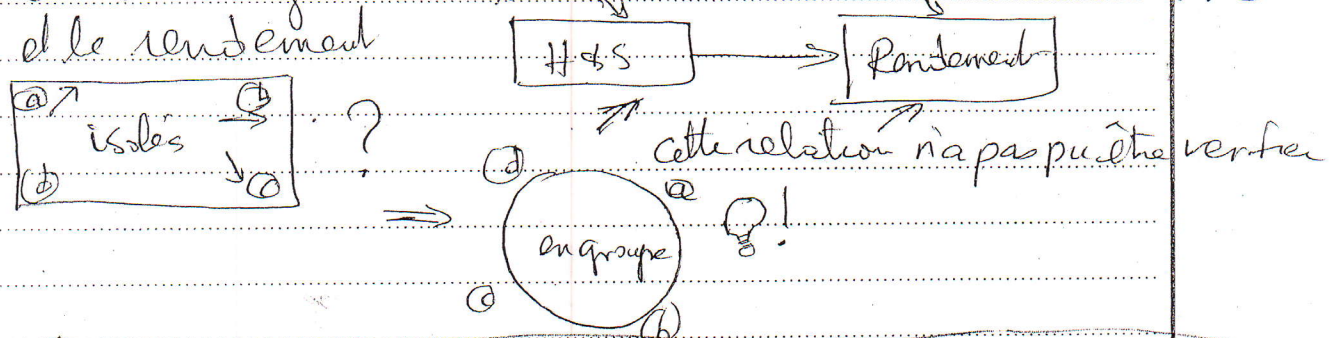 et le rendement
H&S
Rendement
a
b
isolés
?
b
c
cette relation n'a pas pu être verfier
d
a
en groupe
!
c
b